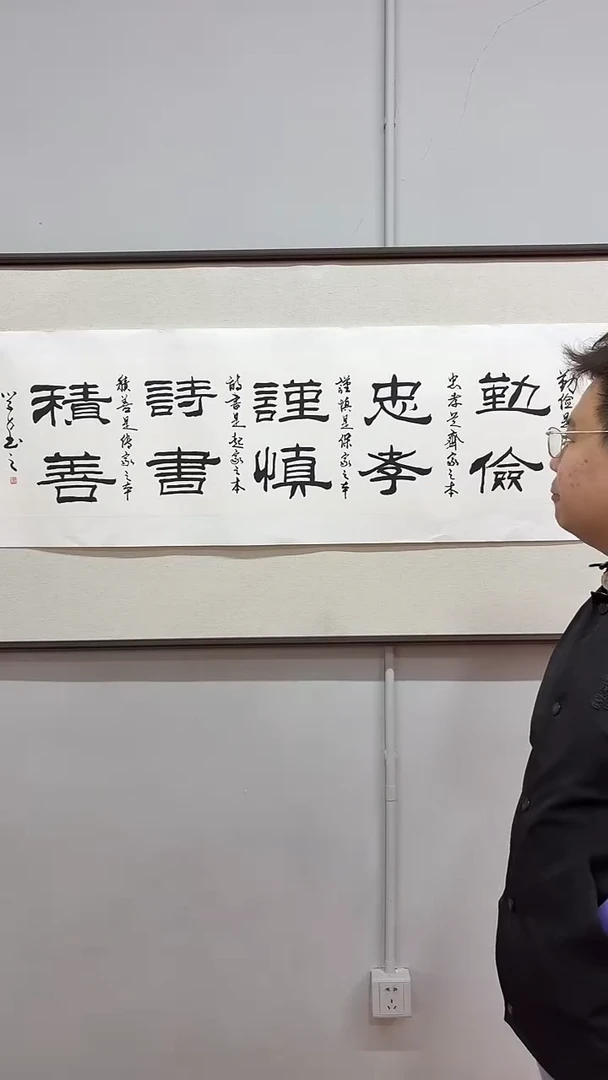 勤儉
勤俭是
忠孝
忠孝是齊家之本
謹慎
謹慎是保家之本
詩書
詩書是起家之本
積善
積善是傳家之本